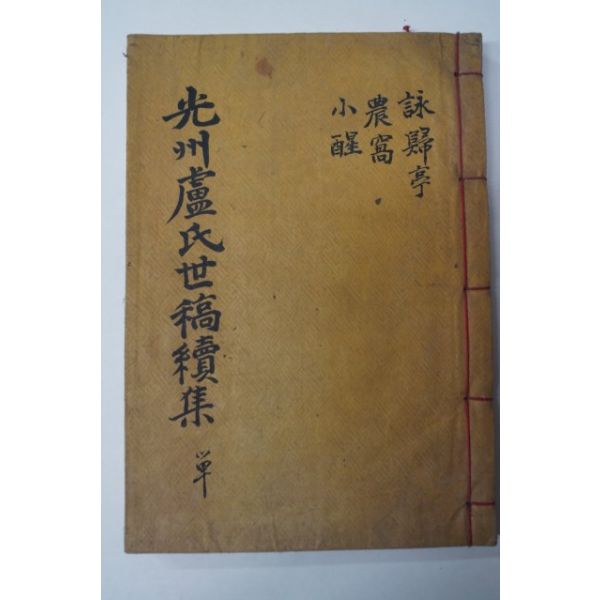 詠歸亭
農窩
小醒
光州盧氏世稿續集 単